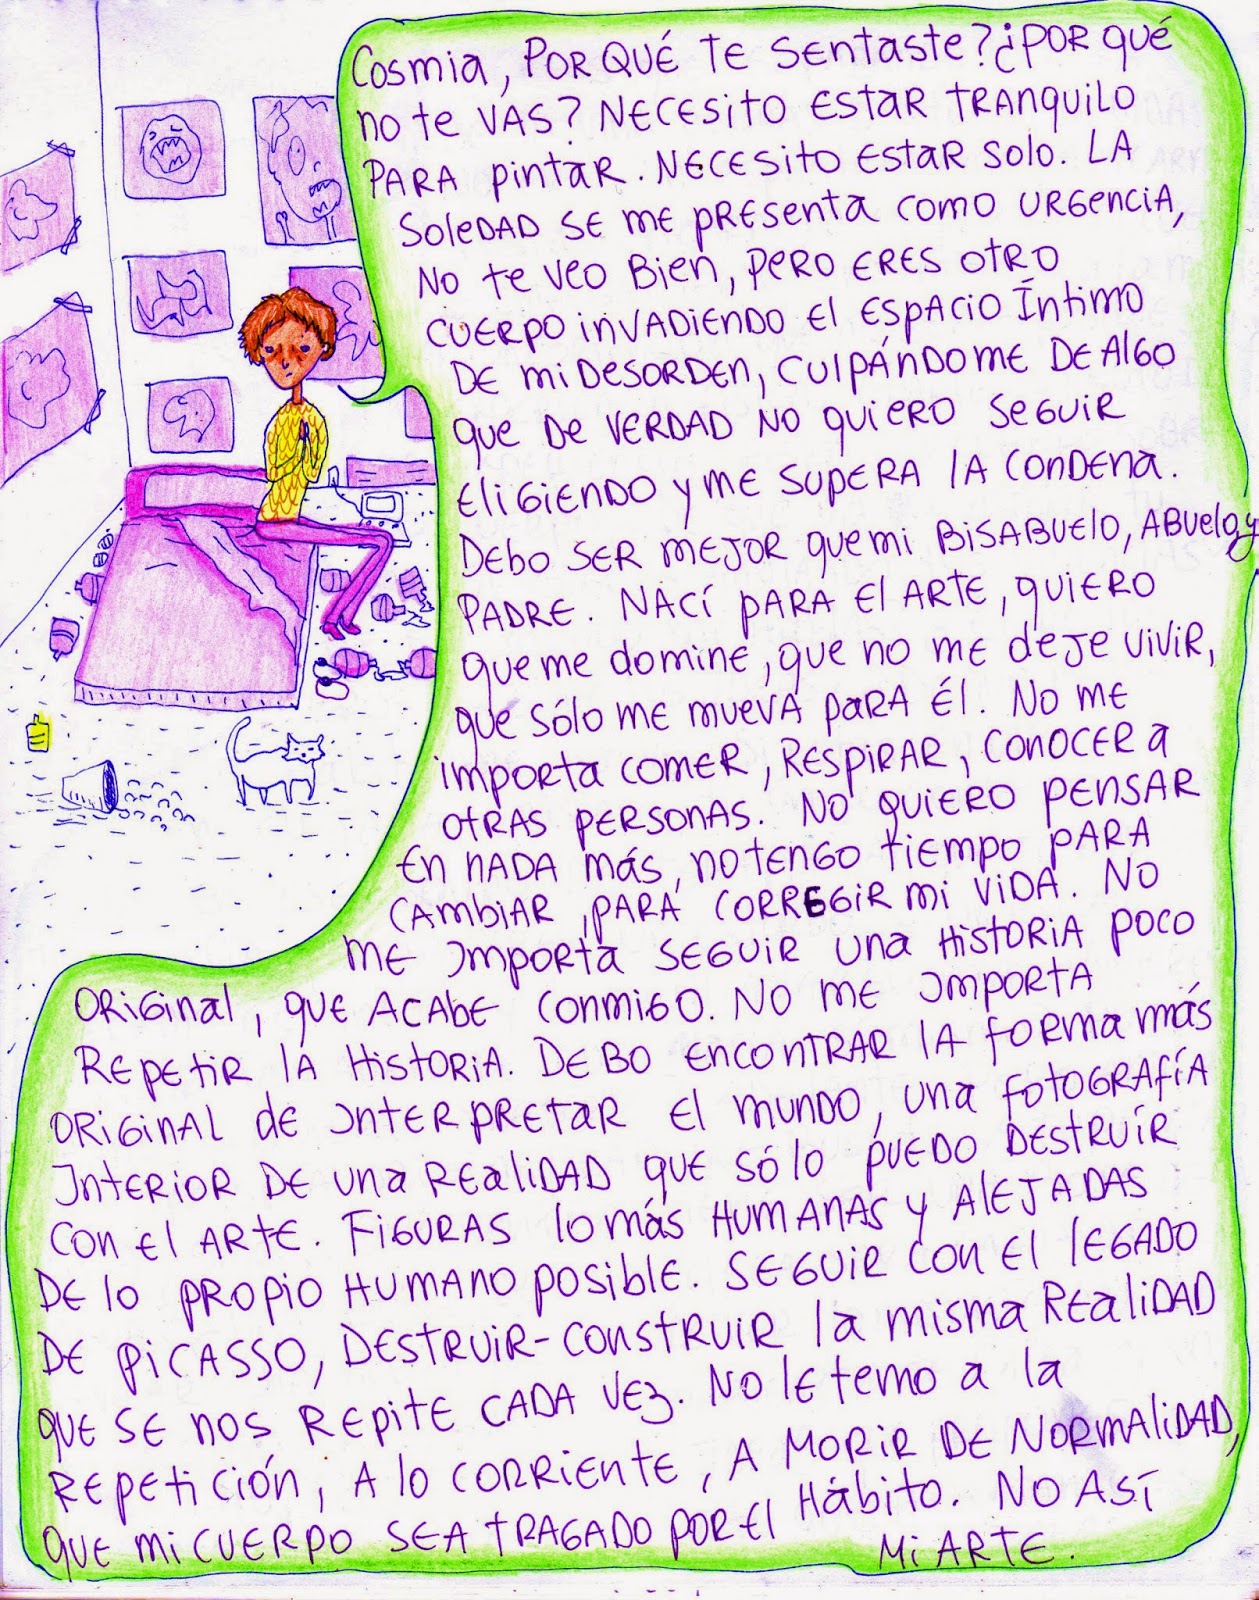 Cosmia, PORQUÉ TE SENTASTE? ¿POR QUÉ
NO TE VAS? NECESITO ESTAR TRANQUILO
PARA PINTAR. NECESITO ESTAR SOLO. LA
SOLEDAD SE ME PRESENTA COMO URGENCIA,
NO TE VEO BIEN, PERO ERES OTRO
CUERPO INVADIENDO EL ESPACIO ÍNTIMO
DE MI DESORDEN, CULPÁNDOME DE ALGO
QUE DE VERDAD NO QUIERO SEGUIR
ELIGIENDO Y ME SUPERA LA CONDENA.
DEBO SER MEJOR QUE MI BISABUELO, ABUELO Y
PADRE. NACÍ PARA EL ARTE, QUIERO
QUE ME DOMINE, QUE NO ME DEJE VIVIR,
QUE SÓLO ME MUEVA PARA ÉL. NO ME
IMPORTA COMER, RESPIRAR, CONOCER A
OTRAS PERSONAS. NO QUIERO PENSAR
EN NADA MÁS, NO TENGO TIEMPO PARA
CAMBIAR, PARA CORREGIR MI VIDA. NO
ME IMPORTA SEGUIR UNA HISTORIA POCO
ORIGINAL, QUE ACABE CONMIGO. NO ME IMPORTA
REPETIR LA HISTORIA. DEBO ENCONTRAR LA FORMA MÁS
ORIGINAL DE INTERPRETAR EL MUNDO, UNA FOTOGRAFÍA
INTERIOR DE UNA REALIDAD QUE SÓLO PUEDO DESTRUÍR
CON EL ARTE. FIGURAS LO MÁS HUMANAS Y ALEJADAS
DE LO PROPIO HUMANO POSIBLE. SEGUIR CON EL LEGADO
DE PICASSO, DESTRUIR-CONSTRUIR LA MISMA REALIDAD
QUE SE NOS REPITE CADA VEZ. NO LE TEMO A LA
REPETICIÓN, A LO CORRIENTE, A MORIR DE NORMALIDAD,
QUE MI CUERPO SEA TRAGADO POR EL HÁBITO. NO ASÍ
MI ARTE.